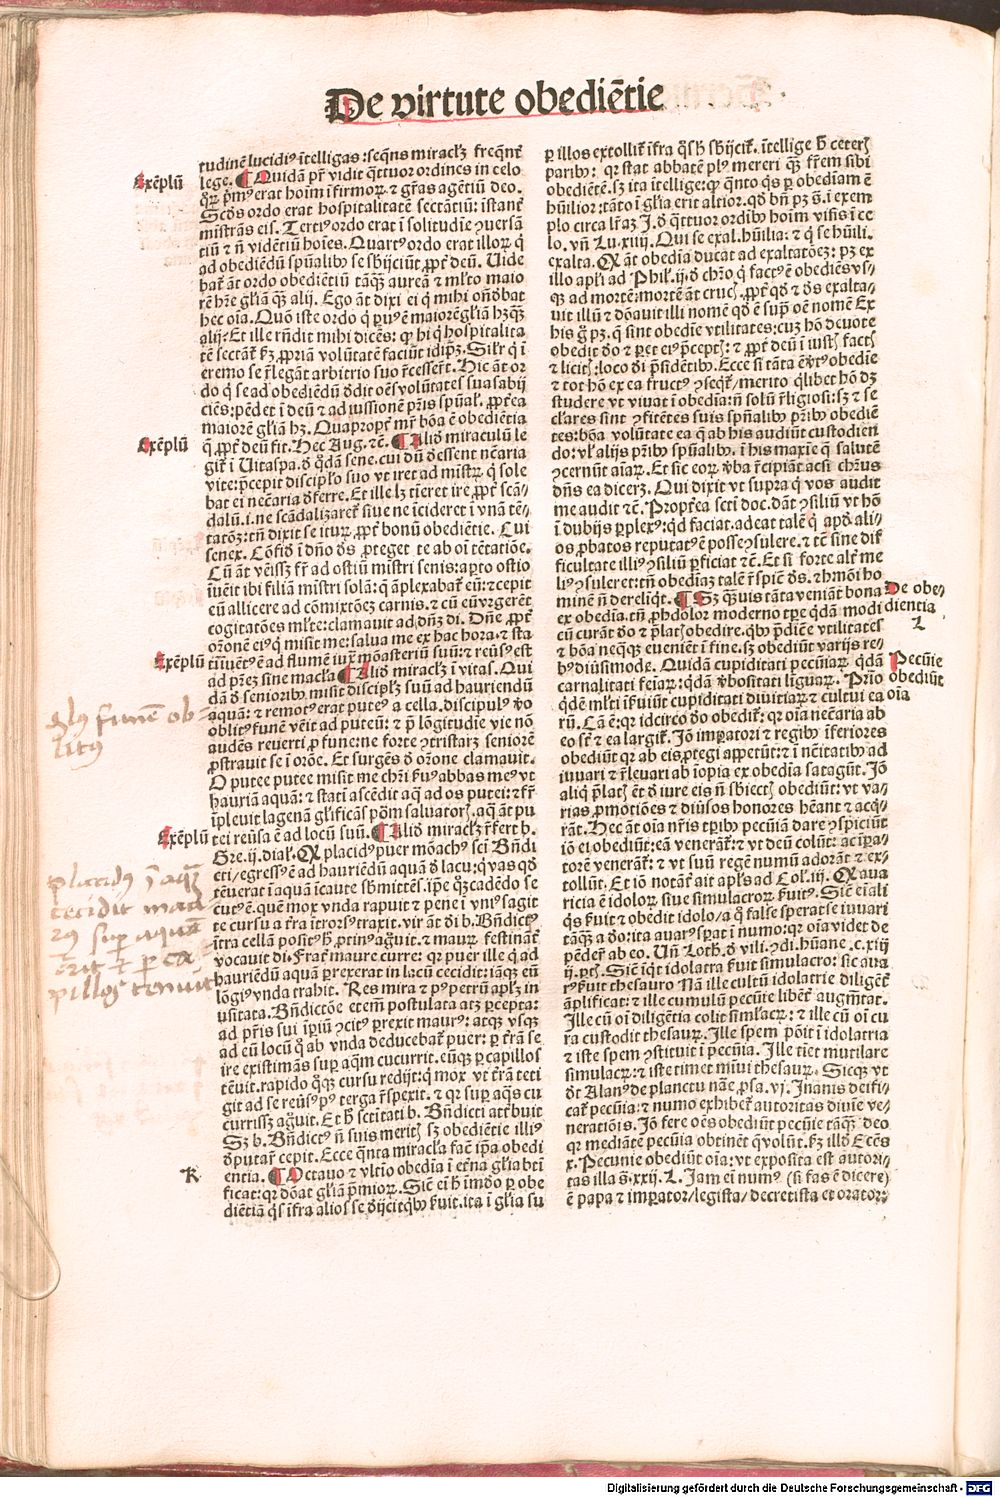 De virtute obediētie
tudinē lucidiꝰ ītelligas: seqēns miraclꝫ freqn̄t
Exēplū
lege. ¶ Quidā pr̄ vidit qttuor ordines in celo
qꝝ pͥmꝰ erat hoīm īfirmoꝝ ⁊ gr̄as agētiū deo.
Scd̄s ordo erat hospitalitatē sectātiū: īstant̄
mīstrās eis. Tertiꝰ ordo erat ī solitudīe ꝯuersā
tiū ⁊ nō vidētiū hoīes. Quartꝰ ordo erat illoꝝ q̄
ad obediēdū spūalibꝰ se sb̄ijciūt ꝓpt̄ deū. Uide
bat̄ āt ordo obediētiū tāqꝫ aureā ⁊ ml̄to maio
rē hr̄e glīam qꝫ alij. Ego āt dixi ei q̄ mihi oñdebat
hec oīa. Quō iste ordo q̄ pͣuꝰ ē maiorē glīam hꝫ qꝫ
alij? Et ille rn̄dit mihi dicēs: qꝛ hi q̄ hospitalita
tē sectāt̄ ꝑ ꝓpriam volūtatē faciūt id ip̄ꝫ. Silr̄ q̄ ī
eremo se r̄legāt arbitrio suo r̄cesser̄t. Hic āt or
do q̄ se ad obediēdū ddit oēs volūtates suas abij
ciēs: pēdet ī deū ⁊ ad iussionē pr̄is spūal̄. ꝓpt̄ea
maiorē glīam hꝫ. Quapropt̄ mr̄ bōa ē obediētia
Exēplū
q̄ ꝓpt̄ deū fit. Hec Aug. ⁊c̄. ¶ Aliō miraculū le
git̄ ī Uitaspa. ō qdā sene. cui dū dessent nc̄aria
vite: p̄cepit discipl̄o suo vt iret ad mīstrꝫ q̄ sole
bat ei nc̄aria dferre. Et ille lꝫ tīeret ire ꝓpt̄ scā-
dalū. i. ne scādalizaret̄ siue ne īcideret ī vnā tē-
tatōꝫ: tn̄ dixit se iturꝫ ꝓpt̄ bonū obediētie. Cui
senex. Cōfid̄ ī dn̄o ds̄ ꝓteget te ab oī tētatiōe.
Cū āt vēiss; fr̄ ad ostiū mīstri senis: aꝑto ostio
īuēit ibi filiā mīstri solā: q̄ āplexabat̄ eū: ⁊ cepit
eū allicere ad cōmixtōeꝫ carnis. ⁊ cū eū vrgerēt
cogitatōes ml̄te: clamauit ad dn̄ꝫ di. Dn̄e ꝓpt̄
orōnē eiꝰ q̄ misit me: salua me ex hac hora. ⁊ sta
Exēplū
tī īuētꝰ ē ad flumē iuxͣ mōasteriū suū: ⁊ reūsꝰ est
ad pr̄eꝫ sine macl̄a ¶ Aliō miraclꝫ ī vitas. Qui
dā ō senioribꝰ misit disciplꝫ suū ad hauriendū
glꝰ funē ob-
litꝰ
aquā: ⁊ remotꝰ erat puteꝰ a cella. discipulꝰ vō
oblitꝰ funē vēit ad puteū: ⁊ p̄ lōgitudīe vie nō
audēs reuerti ꝓ fune: ne forte ꝯtristarꝫ seniorē
ꝓstrauit se ī orōe. Et surgēs ō orōne clamauit.
O putee putee misit me chr̄i ẜuꝰ abbas meꝰ vt
hauriā aquā: ⁊ statī ascēdit aq̄ ad os putei: ⁊ fr̄
īpleuit lagenā glīficās pōm saluatorꝫ. aq̄ āt pu
Exēplū
tei reūsa ē ad locū suū. ¶ Aliō miraclꝫ r̄fert b.
Gre. ij. dial̄. Qꝫ placidꝰ puer mōachꝰ scī Bn̄di
placidꝰ ī aquā
cecidit mau
rꝰ sup aquā
iuit ⁊ ꝑ ca-
pillos tenuit
cti / egressꝰ ē ad hauriēdū aquā ō lacu: q̄ vas qd̄
tēuerat ī aquā īcaute sb̄mittēs. ip̄e qꝫ cadēdo se
cutꝰ ē. quē mox vnda rapuit ⁊ pene ī vniꝰ sagit
te cursu a tr̄a ītrorsꝰ traxit. vir āt di b. Bn̄dictꝰ
ītra cellā positꝰ hͦ ꝓtinꝰ agͦuit. ⁊ maurꝫ festināt̄
vocauit di. Frat̄ maure curre: qꝛ puer ille q̄ ad
hauriēdū aquā ꝑrexerat in lacū cecidit: iāqꝫ eū
lōgiꝰ vnda trahit. Res mira ⁊ pꝰ petrū apl̄ꝫ in
usitata. Bn̄dictōe etem̄ postulata atqꝫ ꝑcepta:
ad pr̄is sui īꝑiū ꝯcitꝰ ꝑrexit maurꝰ: atqꝫ vsqꝫ
ad eū locū q̄ ab vnda deducebat̄ puer: ꝑ tr̄ā se
ire existimās suꝑ aq̄m cucurrit. eūqꝫ ꝑ capillos
tēuit. rapido qͦqꝫ cursu redijt: q̄ mox vt tr̄ā teti
git ad se reūsꝰ pꝰ terga r̄spexit. ⁊ qꝛ suꝑ aq̄s cu
currissꝫ agͦuit. Et hͦ sctitati b. Bn̄dicti attͥbuit
Sꝫ b. Bn̄dictꝰ nō suis meritꝭ sꝫ obediētie illiꝰ
dputar̄ cepit. Ecce q̄nta miracl̄a facͥt ip̄a obedi
K
entia. ¶ Octauo ⁊ vltīo obedīa ī et̄na gl̄ia bti
ficat: qꝛ dōat gl̄iā pͥmioꝝ. Sic̄ ei hͥ īmō ꝑ obe
diētiā q̄s īfra alios se dijcit qb̄ꝰ ẜuit. ita ī gl̄ia su
ꝑ illos extollit̄ ifra q̄s hͥ sb̄ijcit̄. ītellige hͦ ceterꝭ
paribꝰ: qꝛ stat abbatē plꝰ mereri qꝫ fr̄em sibi
obediētē. sꝫ ita ītellige: qꝛ qnto q̄s ꝑ obediam ē
hūilior: tāto ī glīa erit altior. qd̄ bn̄ pꝫ s. ī exem
plo circa lr̄aꝫ I. ō qttuor ordibꝰ hoīm visis ī ce
lo. vn̄ Lu. xiiij. Qui se exal. hūilia: ⁊ q̄ se hūili.
exalta. Qꝫ āt obedīa ducat ad exaltatōeꝫ: pꝫ ex
illo apl̄i ad Phil̄. ij. ō chr̄o q̄ factꝰ ē obediēs vs-
qꝫ ad mortē: mortē āt crucꝭ. ꝓpt̄ qd̄ ⁊ ds̄ exalta-
uit illū ⁊ dōauit illi nomē qd̄ ē suꝑ oē nomē. Ex
his gͥ pꝫ. q̄ sint obedīe vtilitates: cuꝫ hō deuote
obedit deo ⁊ ꝑet eiꝰ p̄ceptꝭ: ⁊ ꝓpt̄ deū ī iustꝭ factꝭ
⁊ licitꝭ: loco dei p̄sidētibꝰ. Ecce si tāta ē vtꝰ obedīe
⁊ tot hō ex ea fructꝰ ꝯseqt̄ / merito qlibet hō dꝫ
studere vt viuat ī obedīa: nō solū r̄ligiosi: sꝫ ⁊ se
clares sint ꝯfitētes suis spūalibꝰ pr̄ibꝰ obediē
tes: bōa volūtate ea q̄ ab his audiūt custodien
do: vl̄ alijs pr̄ibꝰ spūalibꝰ. ī his maxīe q̄ salutē
ꝯcernūt aīaꝝ. Et sic eoꝝ vba r̄cipiāt acsi chr̄us
dn̄s ea diceꝫ. Qui dixit vt supra q̄ vos audit
me audit ⁊c̄. Propt̄ea scti doc. dāt ꝯsiliū vt hō
ī dubijs ꝑplexꝰ: qd̄ faciat. adeat talē q̄ apd̄ ali-
os ꝓbatos reputatꝰ ē posse ꝯsulere. ⁊ tē sine dif
ficultate illiꝰ ꝯsiliū ꝑficiat ⁊c̄. Et si forte alt̄ me
liꝰ ꝯsuleret: tn̄ obediaꝫ talē r̄spic̄ ds̄. ⁊ hmōi ho
De obe-
dientia
L
minē nō dereliqt. ¶ Sꝫ qꝫuis tāta veniāt bona
ex obedīa. tn̄ ꝓhdolor moderno tꝑe qdā modi
cū curāt deo ⁊ p̄latꝭ obedire. qbꝰ p̄dicte vtilitates
⁊ bōa neqqꝫ eueniēt ī fine. sꝫ obediūt varijs re-
Pecūie
obediūt
oīa
bꝰ diuisimode. Quidā cupiditati pecūiaꝝ. qdā
carnalitati feīaꝝ: qdā vbositati līguaꝝ. Prīo
qdē ml̄ti īẜuiūt cupiditati diuitiaꝝ ⁊ cultui ea
rū. Cā ē: qꝛ idcirco deo obedit̄: qꝛ oīa nc̄aria ab
eo sr̄t ⁊ ea largit̄. Iō impatori ⁊ regibꝰ īferiores
obediūt qꝛ ab eis ꝓtegi appetūt: ⁊ ī nc̄itatibꝰ ad
iuuari ⁊ r̄leuari ab īopia ex obedīa satagūt. Iō
aliq̄ p̄latꝭ ēt ō iure eis nō sbiectꝭ obediūt: vt va-
rias ꝓmotiōes ⁊ diūsos honores hēant ⁊ acq-
rāt. Hec āt oīa nr̄is tꝑibꝰ pecūiā dare ꝯspiciūt
iō ei obediūt: eā venerāt̄: ⁊ vt deū colūt: ac īpa-
torē venerāt̄: ⁊ vt suū regē numū adorāt ⁊ ex-
tollūt. Et iō notāt̄ ait apl̄s ad Col̄. iij. Qꝫ aua
ricia ē idoloꝝ siue simulacroꝝ ẜuitꝰ. Sic̄ ei ali
qs̄ ẜuit ⁊ obedit idolo / a q̄ false sperat se iuuari
tāqꝫ a deo: ita auarꝰ sꝑat ī numo: qꝛ oīa videt de
pēder̄ ab eo. Un̄ Loth. ō vili. ꝯdi. hūane. c. xiij
ij. ptꝭ. Sic̄ iqt idolatra ẜuit simulacro: sic aua
rꝰ ẜuit thesauro Nā ille cultū idolatrie diligēt̄
āplificat: ⁊ ille cumulū pecūie libet̄ augm̄tat.
Ille cū oī diligētia colit simlacꝝ: ⁊ ille cū oī cu
ra custodit thesauꝝ. Ille spem pōit ī idolatria
⁊ iste spem ꝯstituit ī pecūia. Ille tīet mutilare
simulacꝝ: ⁊ iste timet mīui thesauꝝ. Sicqꝫ vt
dt̄ Alanꝰ de planctu nāe ꝓsa. vj. Inamis deifi-
cat̄ pecūia: ⁊ numo exhibet̄ autoritas diuīe ve-
nerationis. Iō fere oēs obediūt pecūie tāqꝫ deo
qꝛ mediāte pecūia obtinet̄ q̄ volūt. ẜꝫ illd̄ Eccēs
x. Pecunie obediūt oīa: vt exposita est autori-
tas illa s. xxij. L. Iam ei numꝰ (si fas ē dicere)
ē papa ⁊ impator / legista / decretista et orator:
Digitalisierung gefördert durch die Deutsche Forschungsgemeinschaft - DFG